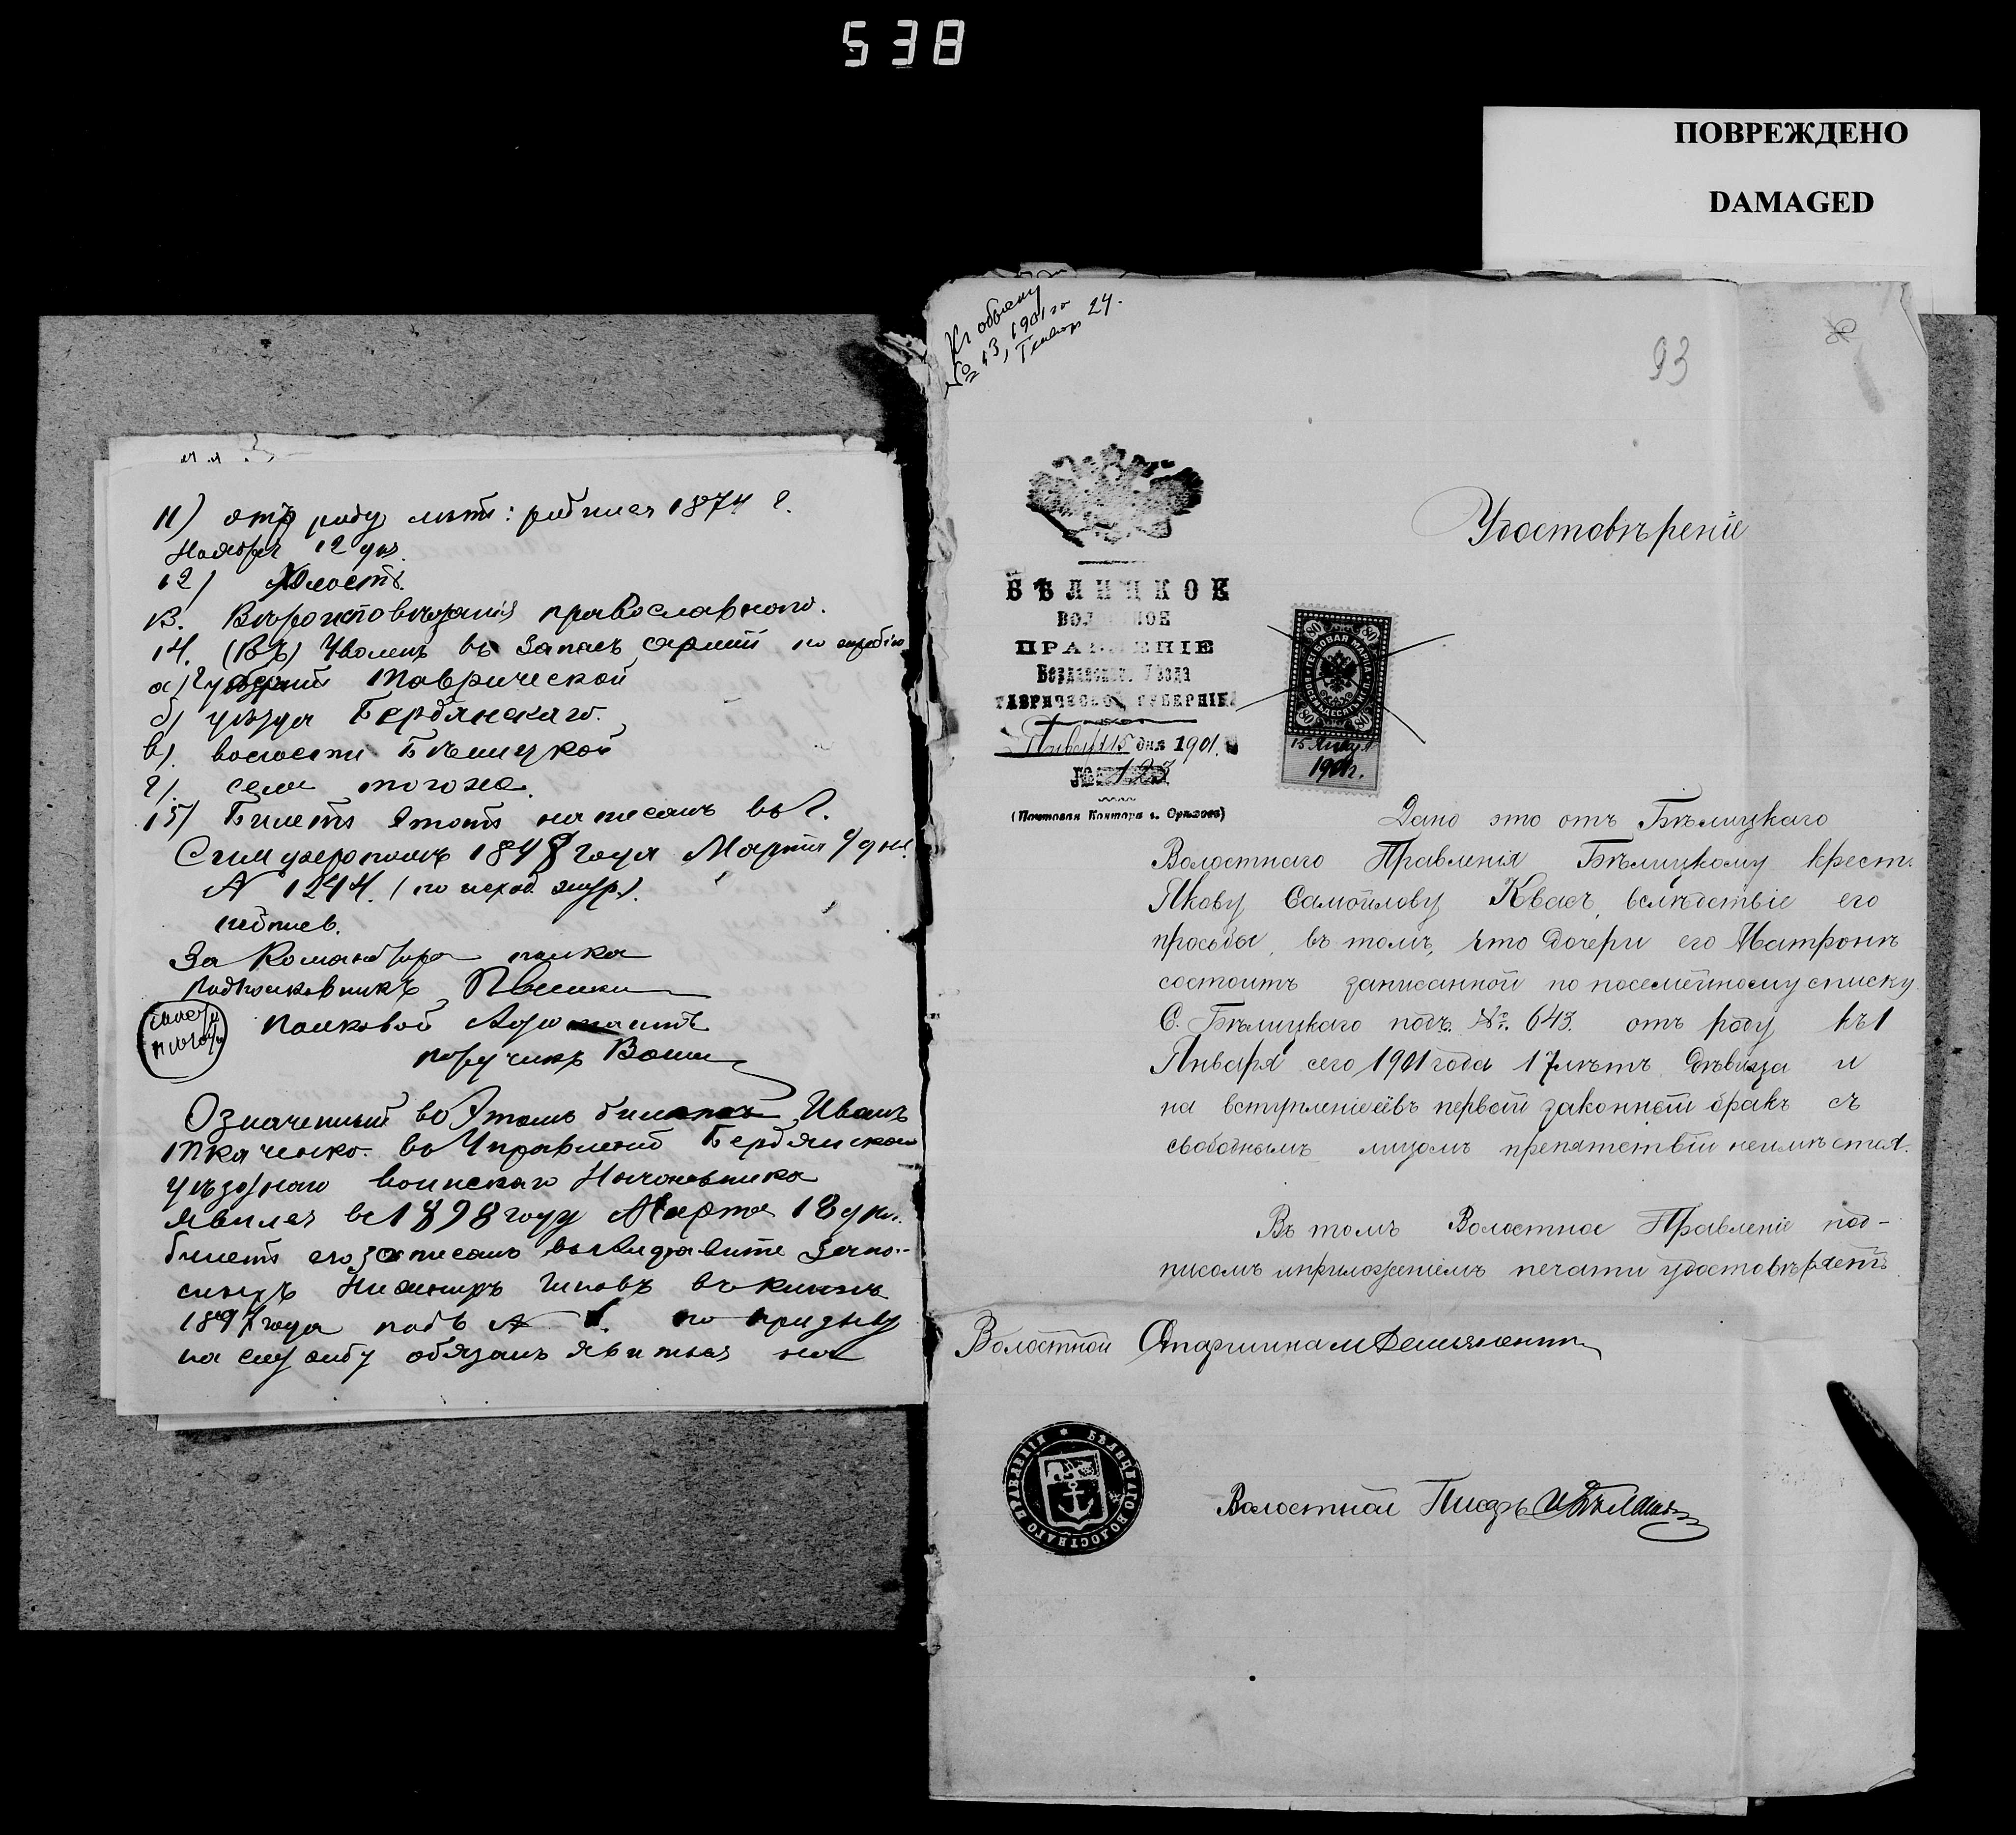 538
ПОВРЕЖДЕНО
DAMAGED
11) отъ роду лѣтъ: родился 1874 г.
Ноября 12 дня.
12) Холостъ.
13. Вѣроисповѣданія православнаго.
14. (Въ) Уволенъ въ запасъ арміи, по
а) губерніи Таврической
б) уѣзда Бердянскаго.
в). волости Бѣлицкой
г). села тогоже.
15) Билетъ этотъ написанъ въ г.
Симферополѣ 1898 года Марта 9 дня.
№ 1244. (по исход. жур.).
подписв.
За Командира полка
Подполковникъ
Полковой Адъютантъ
поручикъ
Означенный въ этомъ билетѣ Иванъ
Ткаченко въ Управленіе Бердянскаго
уѣзднаго воинскаго Начальника
явился въ 1898 году Марта 18 дня.
билетъ его записанъ въ алфавитѣ запа-
сныхъ Нижнихъ чиновъ въ книгѣ
189 года подъ № 1. по призыву
на службу обязанъ явиться на
№ 13, 1901 го
24.
93
Удостовѣреніе
БѢЛИЦКОЕ
ВОЛОСТНОЕ
ПРАВЛЕНІЕ
Бердянскаго Уѣзда
ТАВРИЧЕСКОЙ ГУБЕРНІИ.
Января 15 дня 1901.
№ 123
(Почтовая Контора г. Орѣховъ)
80 80
ГЕРБОВАЯ МАРКА
ВОСЕМЬДЕСЯТЪ КОП.
80 80
15 Января
1901 г.
Дано это отъ Бѣлицкаго
Волостнаго Правленія Бѣлицкому крест.
Якову Самойлову Квасъ, вслѣдствіе его
просьбы, въ томъ, что дочери его Матронѣ
состоитъ записанной по посемейному списку
С. Бѣлицкаго подъ № 643. отъ роду къ 1
Января сего 1901 года 17 лѣтъ, дѣвица и
на вступленіе ея въ первый законный бракъ съ
свободнымъ лицомъ препятствій неимѣется.
Въ томъ Волостное Правленіе под-
писомъ и приложеніемъ печати удостовѣряетъ
Волостной Старшина
БѢЛИЦКАГО ВОЛОСТНАГО ПРАВЛЕНІЯ
Волостной Писарь